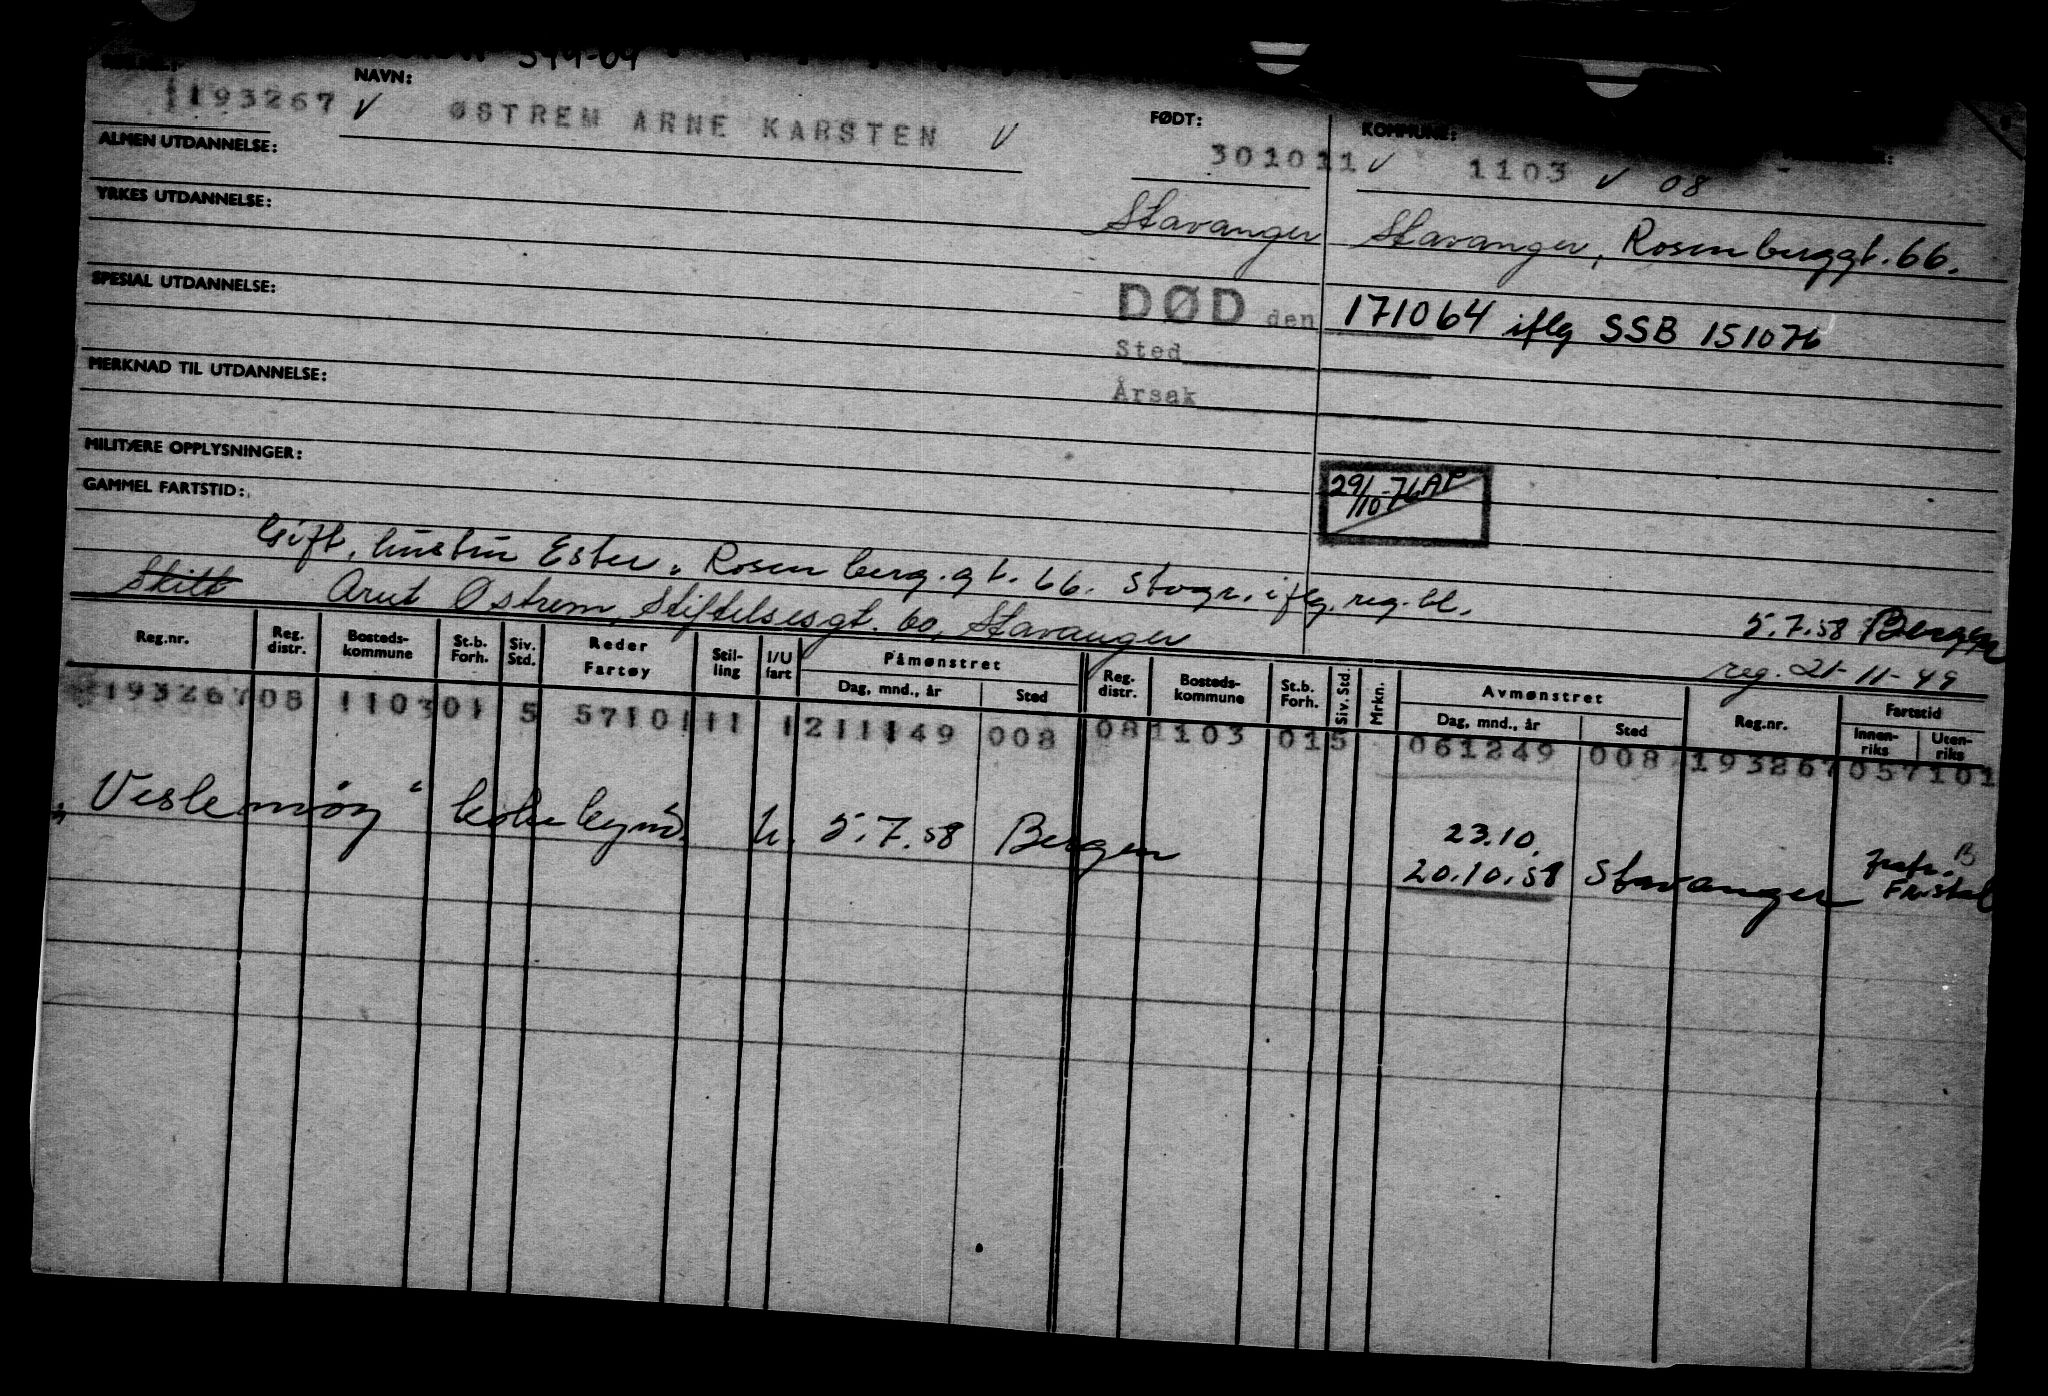 NAVN:
FØDT:
KOMMUNE:
193267 V ØSTREM ARNE KARSTEN V 301011 V 1103 V 08
ALMEN UTDANNELSE:
Stavanger Stavanger, Rosenberggt. 66.
YRKES UTDANNELSE:
DØD den 171064 iflg SSB 151076
SPESIAL UTDANNELSE:
Sted
Årsak
MERKNAD TIL UTDANNELSE:
MILITÆRE OPPLYSNINGER:
29/10-76 AP
GAMMEL FARTSTID:
Gift, hustru Ester, Rosenberg.gt. 66. Stvgr. iflg. reg. bl.
Skilt Arnt Østrem, Stiftelsesgt. 60, Stavanger
5.7.58 Bergen
reg. 21-11-49
Reg.nr. Reg. distr. Bosteds-kommune St.b. Forh. Siv. Std. Reder Fartøy Stil-ling I/U fart Påmønstret Dag, mnd., år Sted Reg. distr. Bosteds-kommune St.b. Forh. Siv. Std. Mrkn. Avmønstret Dag, mnd., år Sted Reg.nr. Fartstid Innen-riks Uten-riks
193267 08 1103 01 5 5710111 1 211149 008 08 1103 01 5 061249 008 193267 057101
"Veslemøy" u. 5.7.58 Bergen 23.10. 20.10.58 Stavanger